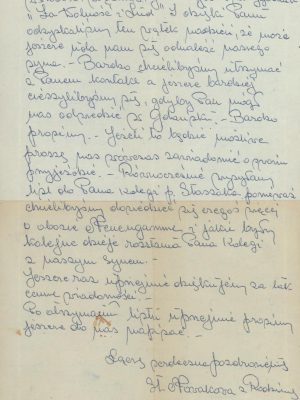 "Za Wolność i Lud" I dzięki Panu
odzyskaliśmy ten wątek nadziei, że może
jeszcze uda nam się odnaleźć naszego
syna. - Bardzo chcielibyśmy utrzymać
z Panem kontakt a jeszcze bardziej
cieszylibyśmy się, gdyby Pan mógł
nas odwiedzić w Gdańsku. - Bardzo
prosimy. - Jeżeli to będzie możliwe
proszę nas zawiadomić o swoim
przyjeździe. - Równocześnie wysyłamy
list do Pana Kolegi p. Staszka ponieważ
chcielibyśmy dowiedzieć się czegoś więcej
o obozie Neuengamme i jakie były
kolejne dzieje rozstania Pana Kolegi
z naszym synem. -
Jeszcze raz uprzejmie dziękujemy za tak
cenne wiadomości. -
Po otrzymaniu listu uprzejmie prosimy
jeszcze do nas napisać. -
Łączę serdeczne pozdrowienia
St. Nowakowa z Rodziną